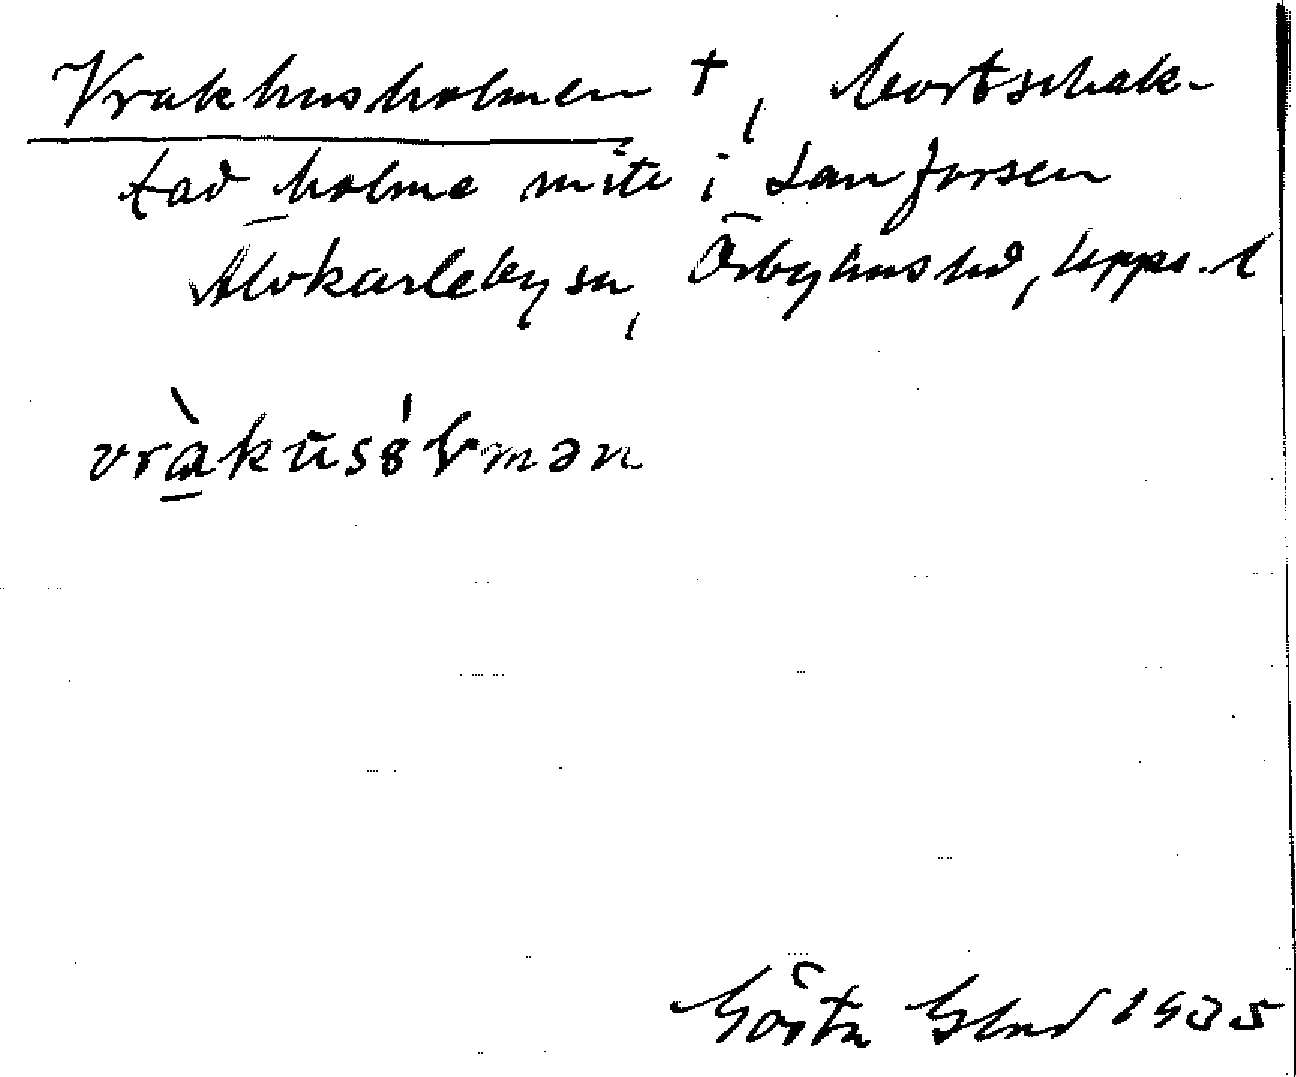 Vrakhusholmen †, bortschak-
tad holme mitt i Lanforsen
Älvkarleby sn, Örbyhus hd, Upps. l
vràkūsólmən
Gösta 1935